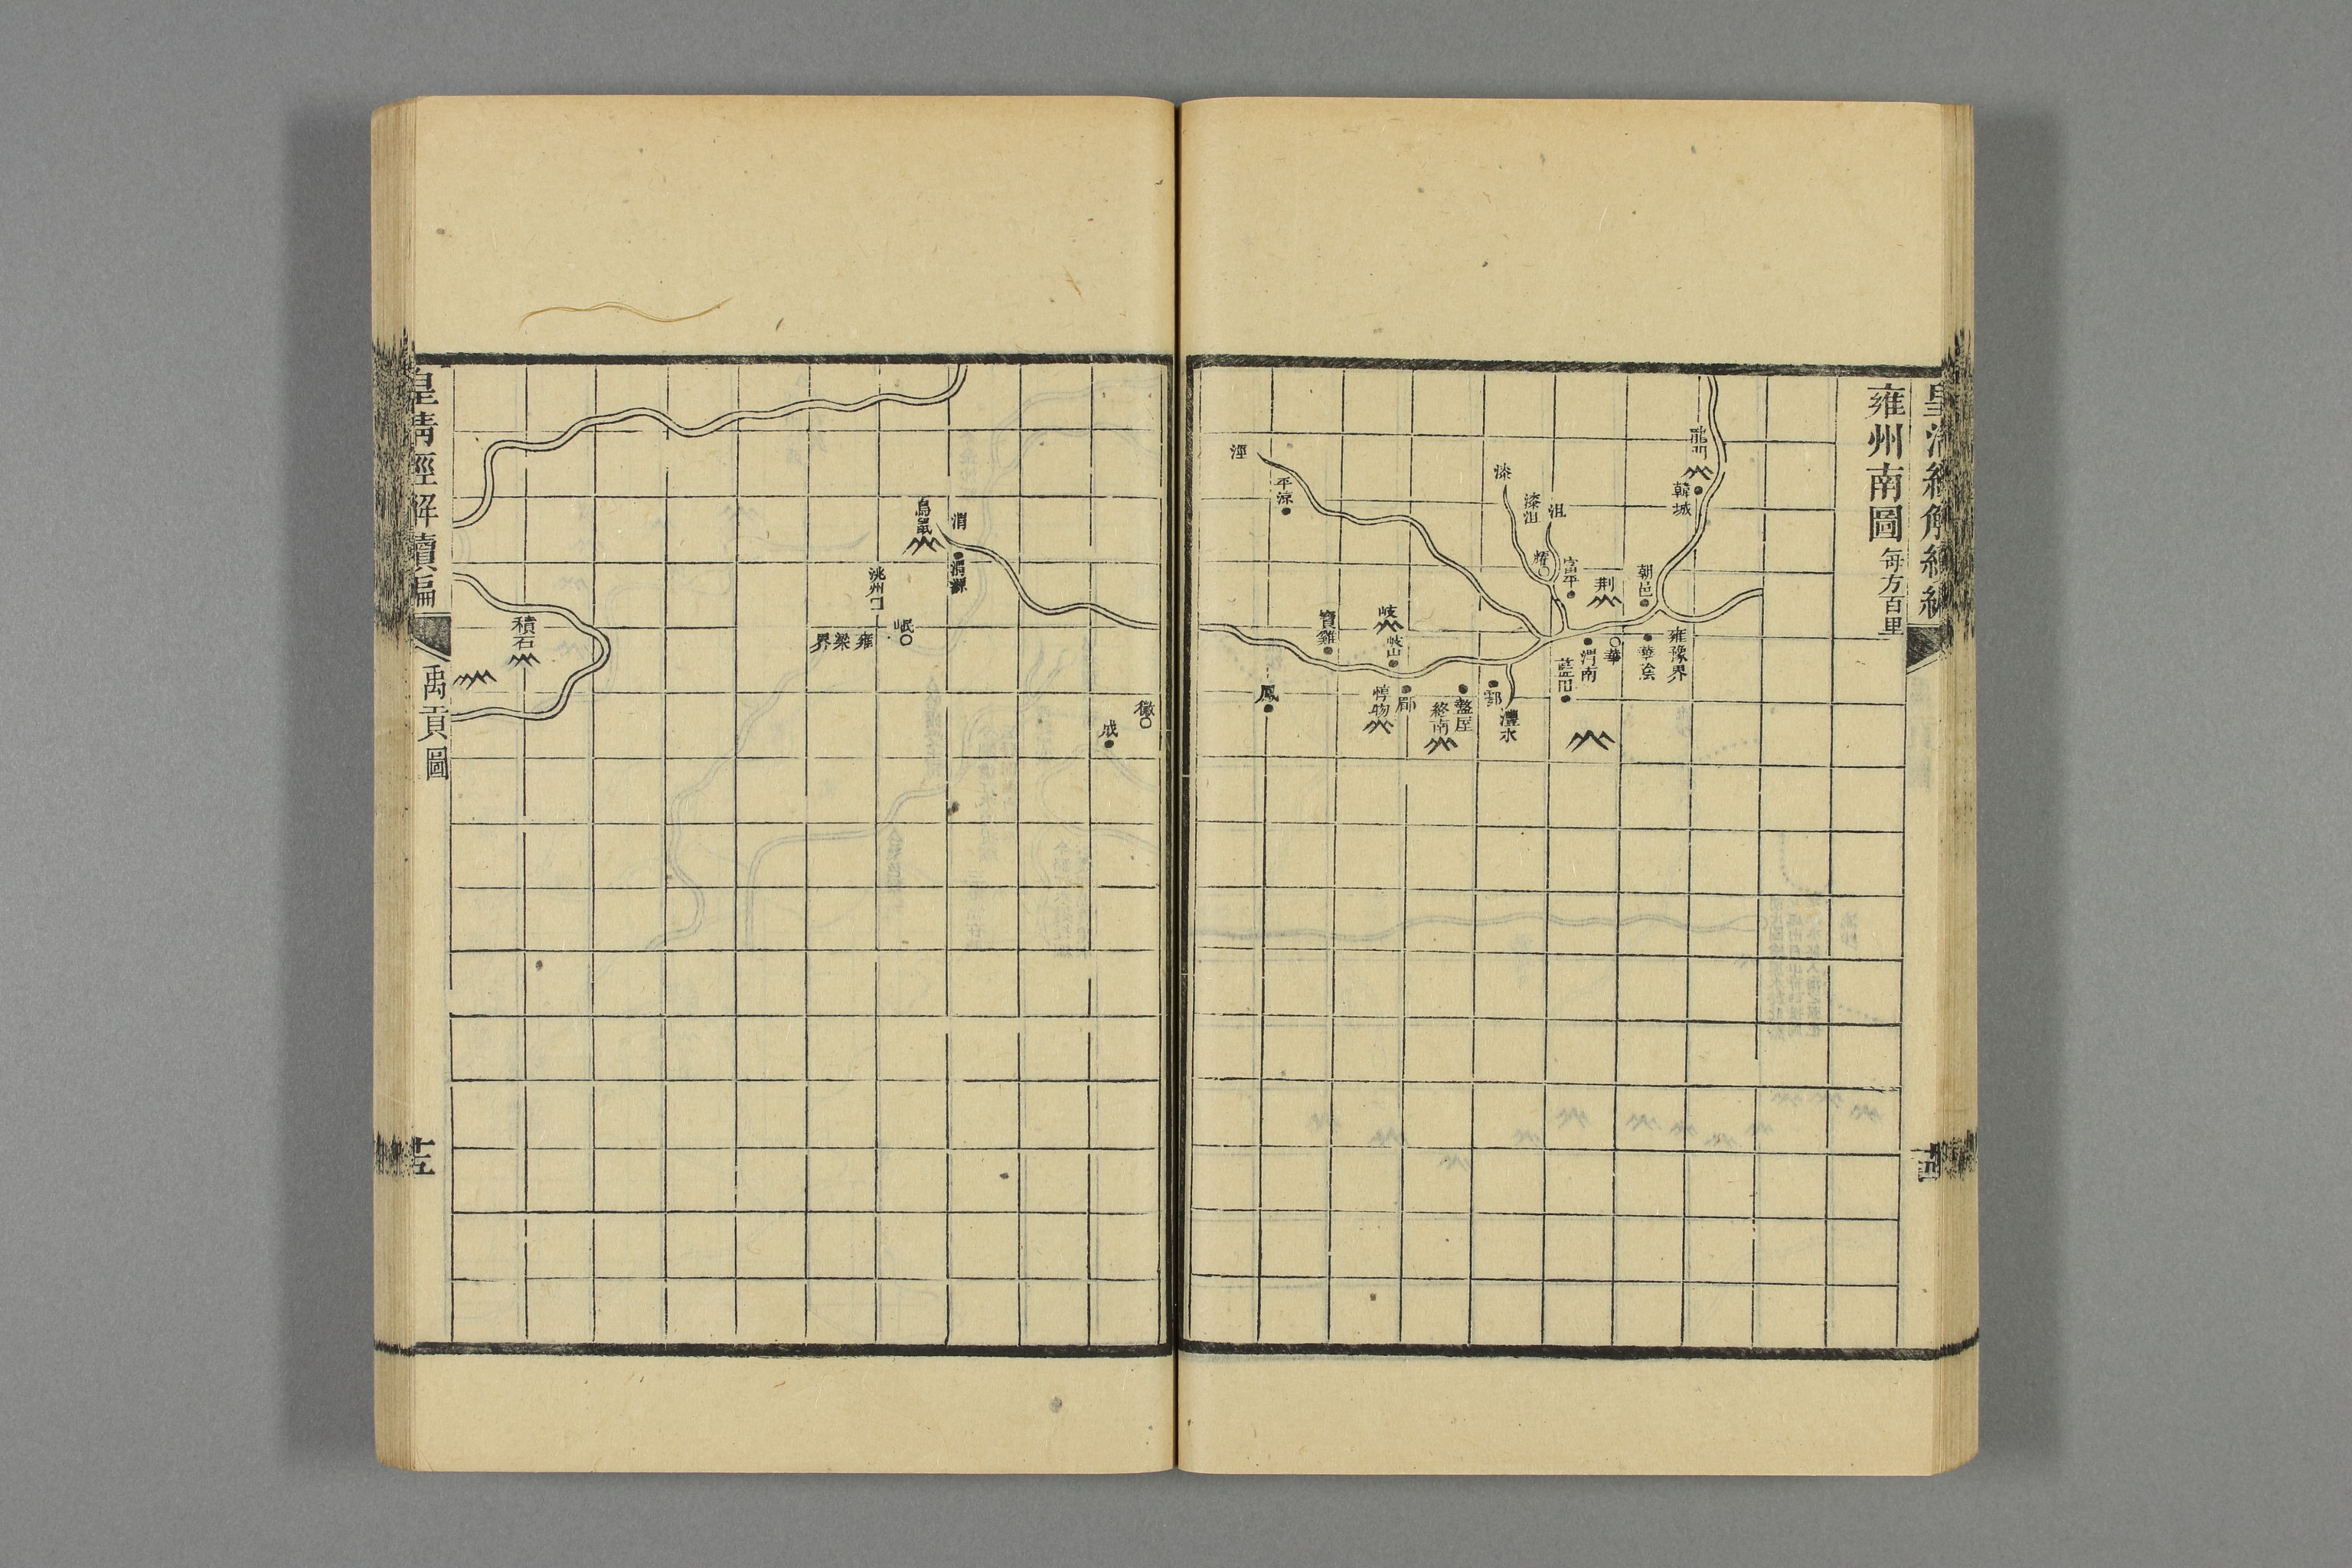 雍州南圖 每方百里
龍門
韓城
雍豫界
朝邑
華陰
荆
華
渭南
富平
藍田
沮
漆沮
耀
漆
灃水
鄠
盩厔
終南
郿
岐
岐山
惇物
寶雞
平涼
鳳
涇
徽
成
渭
渭源
鳥鼠
岷
洮州口
雍梁界
積石
皇清經解續編
禹貢圖
十五